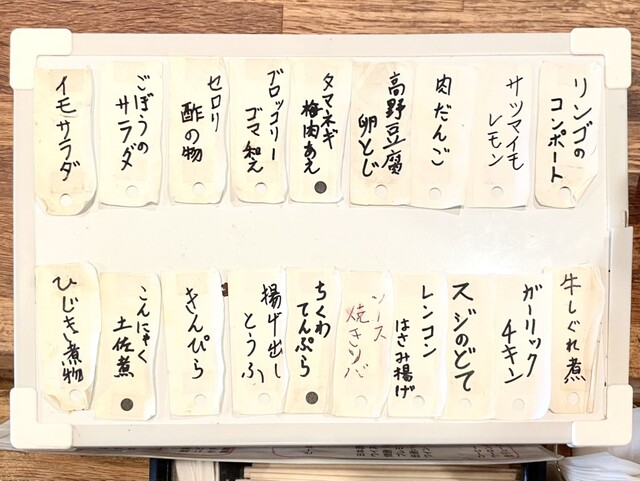 リンゴの
コンポート
サツマイモ
レモン
肉だんご
高野豆腐
卵とじ
タマネギ
梅肉あえ
ブロッコリー
ゴマ和え
セロリ
酢の物
ごぼうの
サラダ
イモサラダ
牛しぐれ煮
ガーリック
チキン
スジのどて
レンコン
はさみ揚げ
ソース
焼きソバ
ちくわ
てんぷら
揚げ出し
とうふ
きんぴら
こんにゃく
土佐煮
ひじき煮物